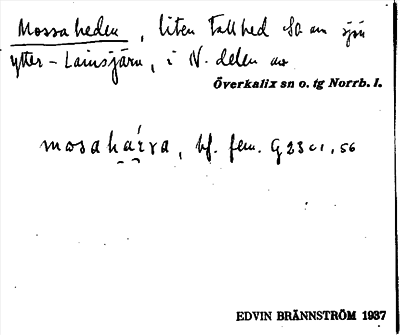 Mossaheden, liten tallhed SO om sjön
Ytter-Lainsjärv, i N. delen av
Överkalix sn o. tg Norrb. l.
mosahárva, bf. fem. G 23 c 1, 56
EDVIN BRÄNNSTRÖM 1937